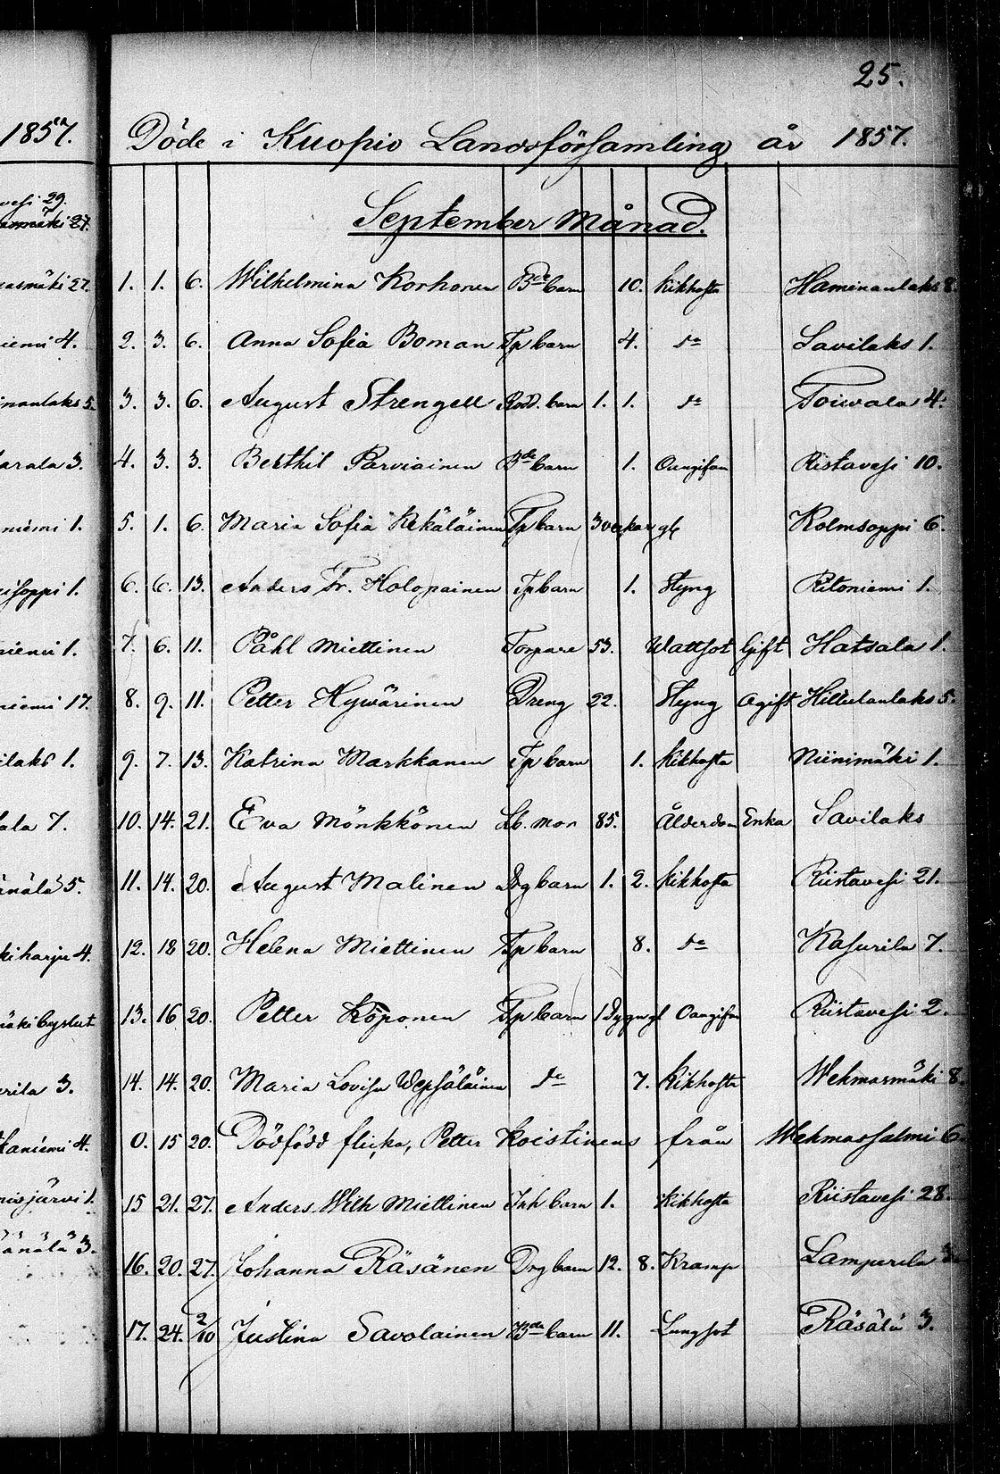 25.
1857.
Döde i Kuopio Landsförsamling år 1857.
September Månad.
1. 1. 6. Wilhelmina Korhonen Bde barn 10. Kikhosta Haminanlaks 8.
2. 3. 6. Anna Sofia Boman Tp barn 4. do Savilaks 1.
3. 3. 6. August Strengell barn 1. 1. do Toiwala 4.
4. 3. 3. Berthil Parviainen Bde barn 1. Oangifven Ristavesi 10.
5. 1. 6. Maria Sofia Kekäläinen Tp barn 3 veckor gl Kolmsoppi 6.
6. 6. 13. Anders Fr. Holopainen Tp barn 1. Styng Ritoniemi 1.
7. 6. 11. Påhl Miettinen Torpare 53. Wattsot Gift Hatsala 1.
8. 9. 11. Petter Hywärinen Dreng 22. Styng Ogift Hiltulanlaks 5.
9. 7. 13. Katrina Markkanen Tp barn 1. Kikhosta Niinimäki 1.
10. 14. 21. Eva Mönkkönen Lb. mor 85. Ålderdom Enka Savilaks
11. 14. 20. August Malinen Drg barn 1. 2. Kikhosta Riistavesi 21.
12. 18 20. Helena Miettinen Tp barn 8. do Kasurila 7.
13. 16 20. Petter Köponen Tp barn 1 Dygn gl Oangifven Riistavesi 2.
14. 14. 20. Maria Lovisa Wepsäläinen do 7. Kikhosta Wehmasmäki 8.
0. 15 20. Dödfödd flicka, Petter Koistinens från Wehmassalmi 6.
15 21. 27. Anders Wilh Miettinen Inh barn 1. Kikhosta Riistavesi 28.
16. 20. 27. Johanna Räsänen Drg barn 12. 8. Kramp Lamperila
17. 24. 2/10 Justina Savolainen Bde barn 11. Lungsot Räsälä 3.